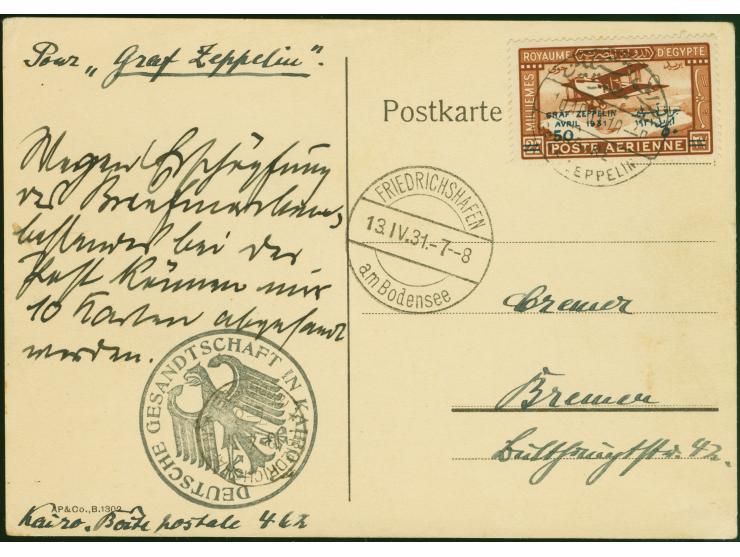 Pour „Graf Zeppelin".
Wegen Erschöpfung
des Briefmarken-
bestandes bei der
Post können nur
10 Karten abgesandt
werden.
DEUTSCHE GESANDTSCHAFT IN KAIRO
AP&Co., B.1302
Kairo. Boîte postale
Postkarte
ROYAUME D'EGYPTE
MILLIEMES
GRAF ZEPPELIN
AVRIL 1931
50
POSTE AERIENNE
ZEPPELIN
FRIEDRICHSHAFEN
13.IV.31.-7-8
am Bodensee
Cremer
Bremen
42.